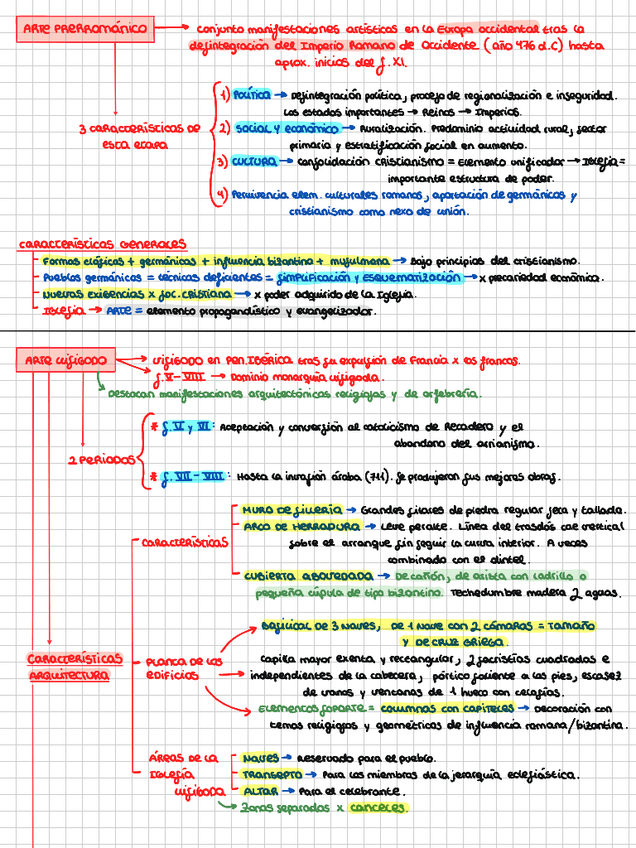 ARTE PRERROMÁNICO → conjunto manifestaciones artísticas en la Europa occidental tras la
desintegración del Imperio Romano de Occidente (año 476 d.C) hasta
aprox. inicios del s.XI.
3 características de
esta etapa
1) POLÍTICA → Desintegración política, proceso de regionalización e inseguridad.
Los estados importantes → Reinos → Imperios.
2) SOCIAL y económico → Ruralización. Predominio actividad rural, sector
primario y estratificación social en aumento.
3) CULTURA → consolidación cristianismo = Elemento unificador → Iglesia =
importante estructura de poder.
4) Pervivencia elem. culturales romanos, aportación de germánicos y
cristianismo como nexo de unión.
CARACTERÍSTICAS GENERALES
Formas clásicas + germánicas + influencia bizantina + musulmana → Bajo principios del cristianismo.
Pueblos germánicos = técnicas deficientes = simplificación y esquematización → x precariedad económica.
Nuevas exigencias x soc.cristiana → x poder adquirido de la Iglesia.
Iglesia → ARTE = elemento propagandístico y evangelizador.
ARTE VISIGODO → VISIGODO en Pen.Ibérica tras su expulsión de Francia x los francos.
s.V-VIII → Dominio monarquía visigoda.
Destacan manifestaciones arquitectónicas religiosas y de orfebrería.
2 PERIODOS
* s.VI y VII: Aceptación y conversión al catolicismo de Recadero y el
abandono del arrianismo.
* s.VII-VIII: Hasta la invasión árabe (711). Se produjeron sus mejores obras.
CARACTERÍSTICAS ARQUITECTURA
CARACTERÍSTICAS
MURO DE SILLERÍA → Grandes sillares de piedra regular seca y tallada.
ARCO DE HERRADURA → Leve peralte. Línea del trasdós cae vertical
sobre el arranque sin seguir la curva interior. A veces
combinado con el dintel.
CUBIERTA ABOVEDADA → De cañón, de arista con ladrillo o
pequeña cúpula de tipo bizantino. Techedumbre madera 2 aguas.
PLANTA DE LOS
EDIFICIOS
Basílical de 3 naves, de 1 nave con 2 cámaras = TAMAÑO
y DE CRUZ GRIEGA.
Capilla mayor exenta y rectangular, 2 sacristías cuadradas e
independientes de la cabecera, pórtico saliente a los pies, escasez
de vanos y ventanas de 1 hueco con celosías.
Elementos soporte = columnas con capiteles → Decoración con
temas religiosos y geométricos de influencia romana/bizantina.
ÁREAS DE LA
IGLESIA
VISIGODA
NAVES → Reservado para el pueblo.
TRANSEPTO → Para los miembros de la jerarquía eclesiástica.
ALTAR → Para el celebrante.
Zonas separadas x canceles.